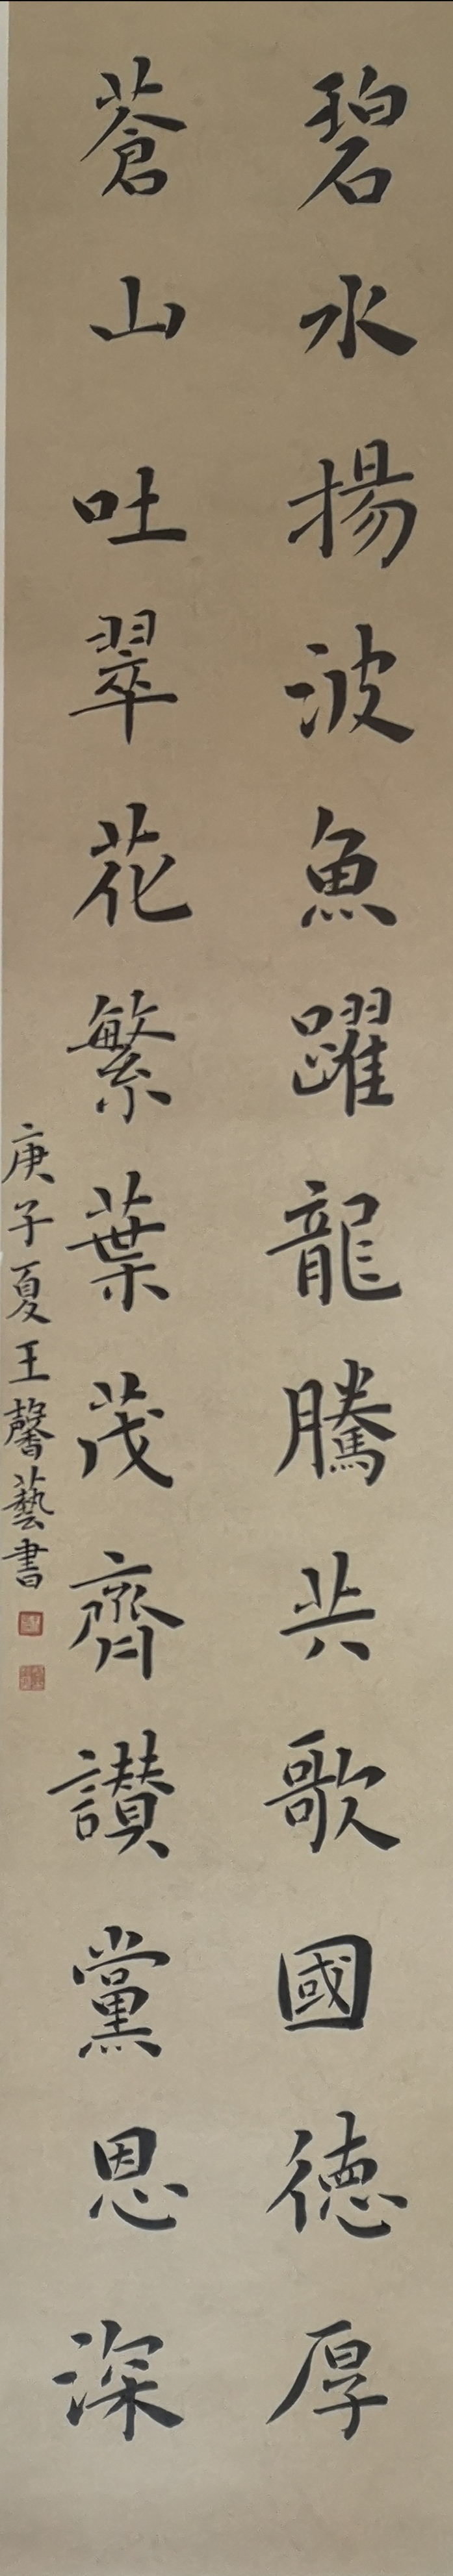 碧水揚波魚躍龍騰共歌國德厚
蒼山吐翠花繁葉茂齊讃黨恩深
庚子夏王馨藝書